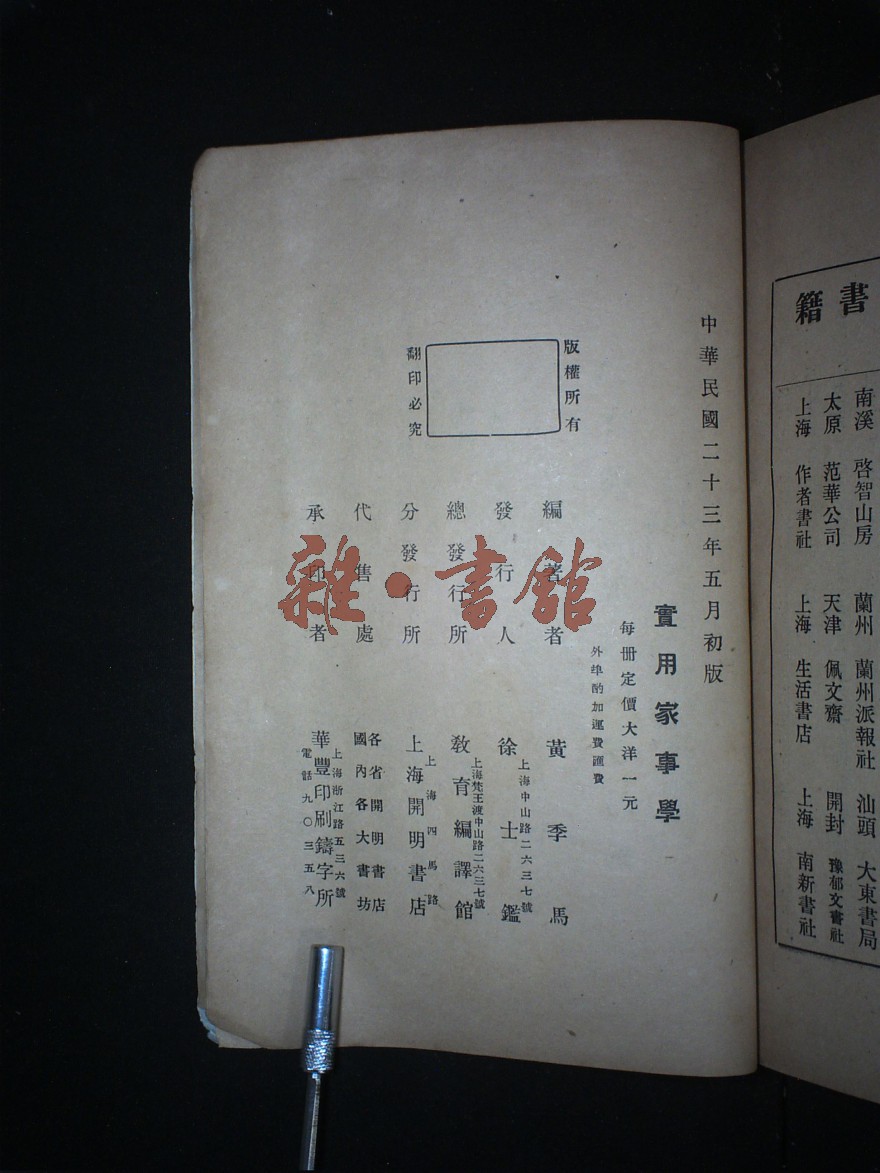 中華民國二十三年五月初版
實用家事學
每冊定價大洋一元
外埠酌加運費匯費
版權所有
翻印必究
編著者 黃季馬
發行人 徐士鑑
上海中山路二六三七號
總發行所 教育編譯館
上海梵王渡中山路二六三七號
分發行所 上海開明書店
上海四馬路
代售處 各省開明書店
國內各大書坊
承印者 華豐印刷鑄字所
上海浙江路五三六號
電話九〇三五八
雜·書館
書籍
南溪 啓智山房 蘭州 蘭州派報社 汕頭 大東書局
太原 范華公司 天津 佩文齋 開封 豫郁文書社
上海 作者書社 上海 生活書店 上海 南新書社